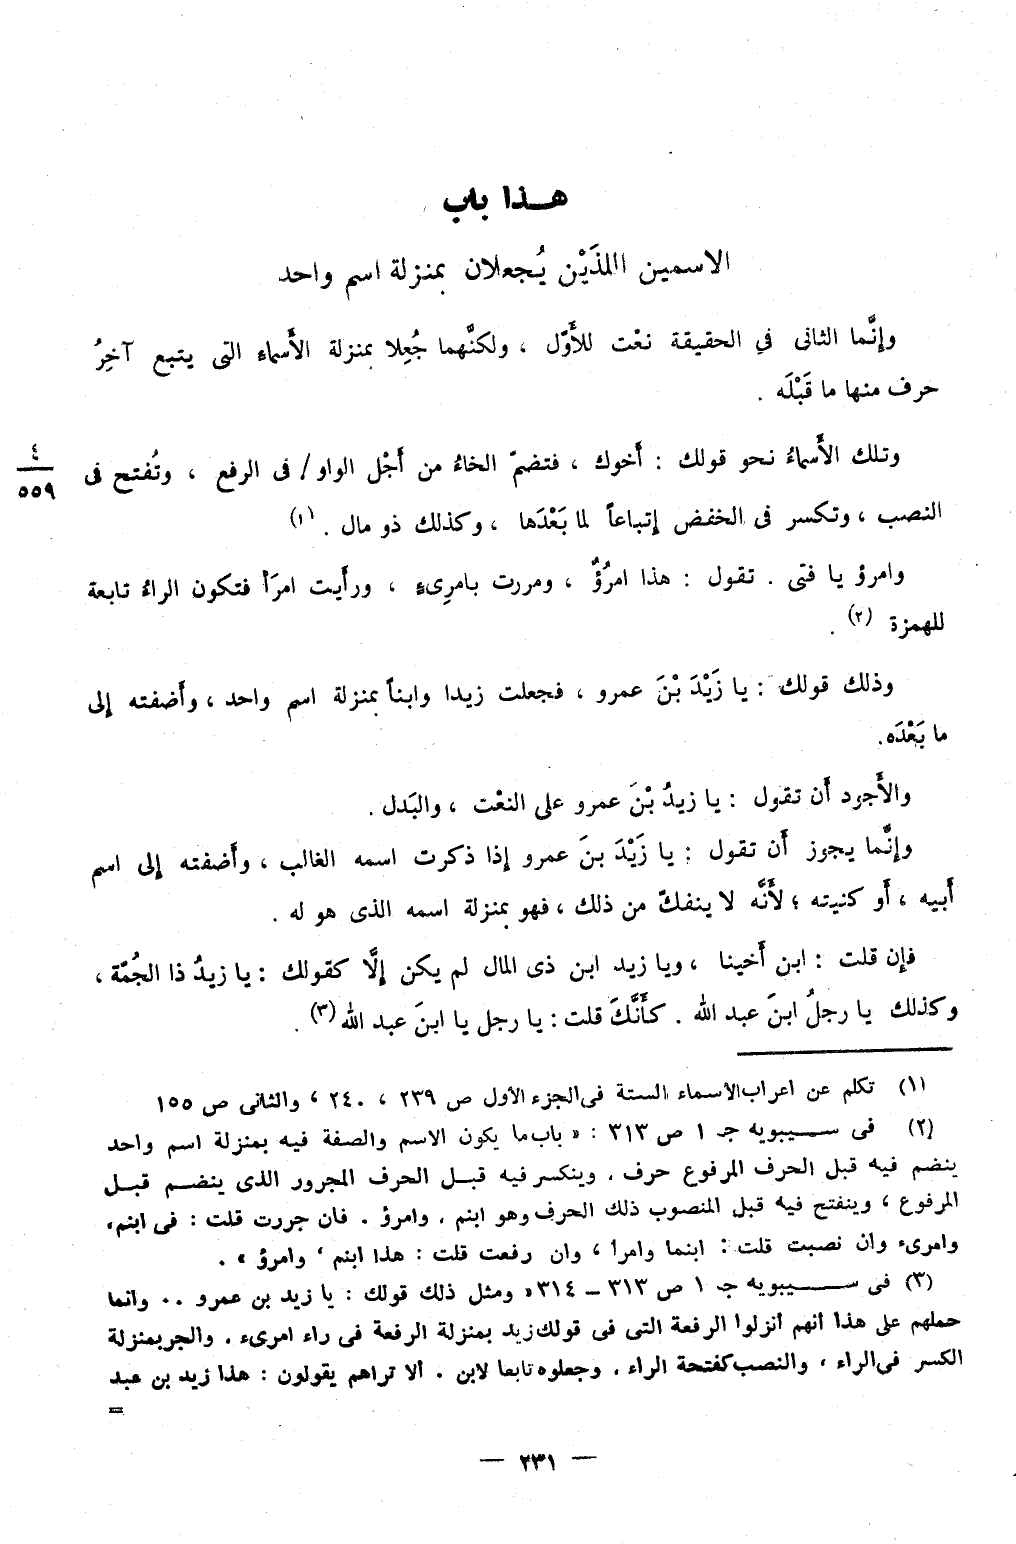 هـــذا باب
الاسمين اللذَيْن يُجعلان بمنزلة اسم واحد
وإنَّما الثانى في الحقيقة نعْت للأَوّل ، ولكنَّهما جُعِلا بمنزلة الأَسماء التى يتبع آخِرُ
حرف منها ما قَبْلَه .
وتلك الأَسماءُ نحو قولك : أَخوك ، فتضمّ الخاءُ من أَجْل الواو / فى الرفع ، وتُفتح فى
٤
٥٥٩
النصب ، وتكسر فى الخفض إتباعاً لما بَعْدَها ، وكذلك ذو مال . (١)
وامرؤ يا فتى . تقول : هذا امرُؤٌ ، ومررت بامرِىءٍ ، ورأَيت امرَأً فتكون الراءُ تابعة
للهمزة (٢) .
وذلك قولك : يا زَيْدَ بْنَ عمرو ، فجعلت زيدا وابناً بمنزلة اسم واحد ، وأَضفته إلى
ما بَعْدَه.
والأَجود أَن تقول : يا زيدُ بْنَ عمرو على النعْت ، والبَدل .
وإنَّما يجوز أَن تقول : يا زَيْدَ بنَ عمرو إذا ذكرت اسمه الغالب ، وأَضفته إلى اسم
أَبيه ، أَو كنيته ؛ لأَنَّه لا ينفكّ من ذلك ، فهو بمنزلة اسمه الذى هو له .
فإن قلت : ابن أَخينا ، ويا زيد ابن ذى المال لم يكن إلَّا كقولك : يا زيدُ ذا الجُمّة ،
وكذلك يا رجلُ ابنَ عبد الله . كأَنَّكَ قلت : يا رجل يا ابنَ عبد الله (٣) .
(١) تكلم عن اعراب الاسماء الستة فى الجزء الأول ص ٢٣٩ ، ٢٤٠ ، والثانى ص ١٥٥
(٢) فى ســـيبويه جـ ١ ص ٣١٣ : « باب ما يكون الاسم والصفة فيه بمنزلة اسم واحد
ينضم فيه قبل الحرف المرفوع حرف ، وينكسر فيه قبـل الحرف المجرور الذى ينضـم قبـل
المرفوع ، وينفتح فيه قبل المنصوب ذلك الحرف وهو ابنم ، وامرؤ . فان جررت قلت : فى ابنم،
وامرىء وان نصبت قلت : ابنما وامرأ ، وان رفعت قلت : هذا ابنم ، وامرؤ » .
(٣) فى ســـــيبويه جـ ١ ص ٣١٣ – ٣١٤ « ومثل ذلك قولك : يا زيد بن عمرو .. وانما
حملهم على هذا أنهم أنزلوا الرفعة التى فى قولك زيد بمنزلة الرفعة فى راء امرىء ، والجر بمنزلة
الكسر فى الراء ، والنصب كفتحة الراء ، وجعلوه تابعا لابن . ألا تراهم يقولون : هذا زيد بن عبد
=
— ٢٣١ —